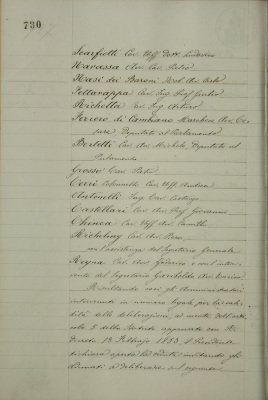 730
Scarfiotti Cav. Uff. Dott. Lodovico
Navassa Av. Cav. Pietro
Nasi dei Baroni Carlo
Pettarappa Cav. Ing. Giulio
Richetta Cav. Ing. Arturo
Ferrero di Cambiano Marchese Av. Ce-
sare, Deputato al Parlamento
Bertetti Cav. Av. Michele, Deputato al
Parlamento
Grosso Can. Pietro
Cerri Colonnello Cav. Uff. Andrea
Antonelli Ing. Cav.
Castellari Cav. Av. Giovanni
Chinea Cav. Uff. Av. Camillo
Richelmy Cav. Av.
con l'assistenza del Segretario Generale
Reyna Cav. Av. Federico e coll'inter-
vento del Segretario Garibaldo Av.
Risultando così gli Amministratori
intervenuti in numero legale per la vali-
dità delle deliberazioni, a mente dell'arti-
colo 5 dello Statuto approvato con R.
Decreto 13 Febbraio 1853, il Presidente
dichiara aperta la seduta invitando gli
adunati a deliberare sul seguente